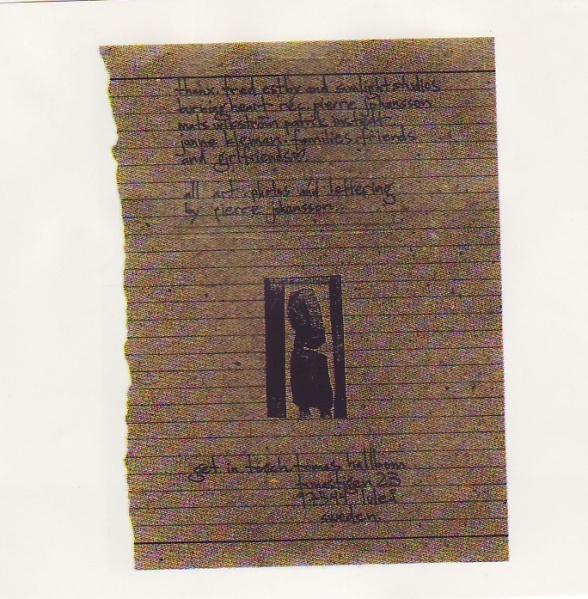 thanx. fred estby and sunlight studios
burning heart rec. pierre johansson
mats wikström patrik
janne kleman. families. friends
and girlfriends
all art. photos and lettering
by pierre johansson.
get in touch. tomas hallbom
23
97594 luleå
sweden.